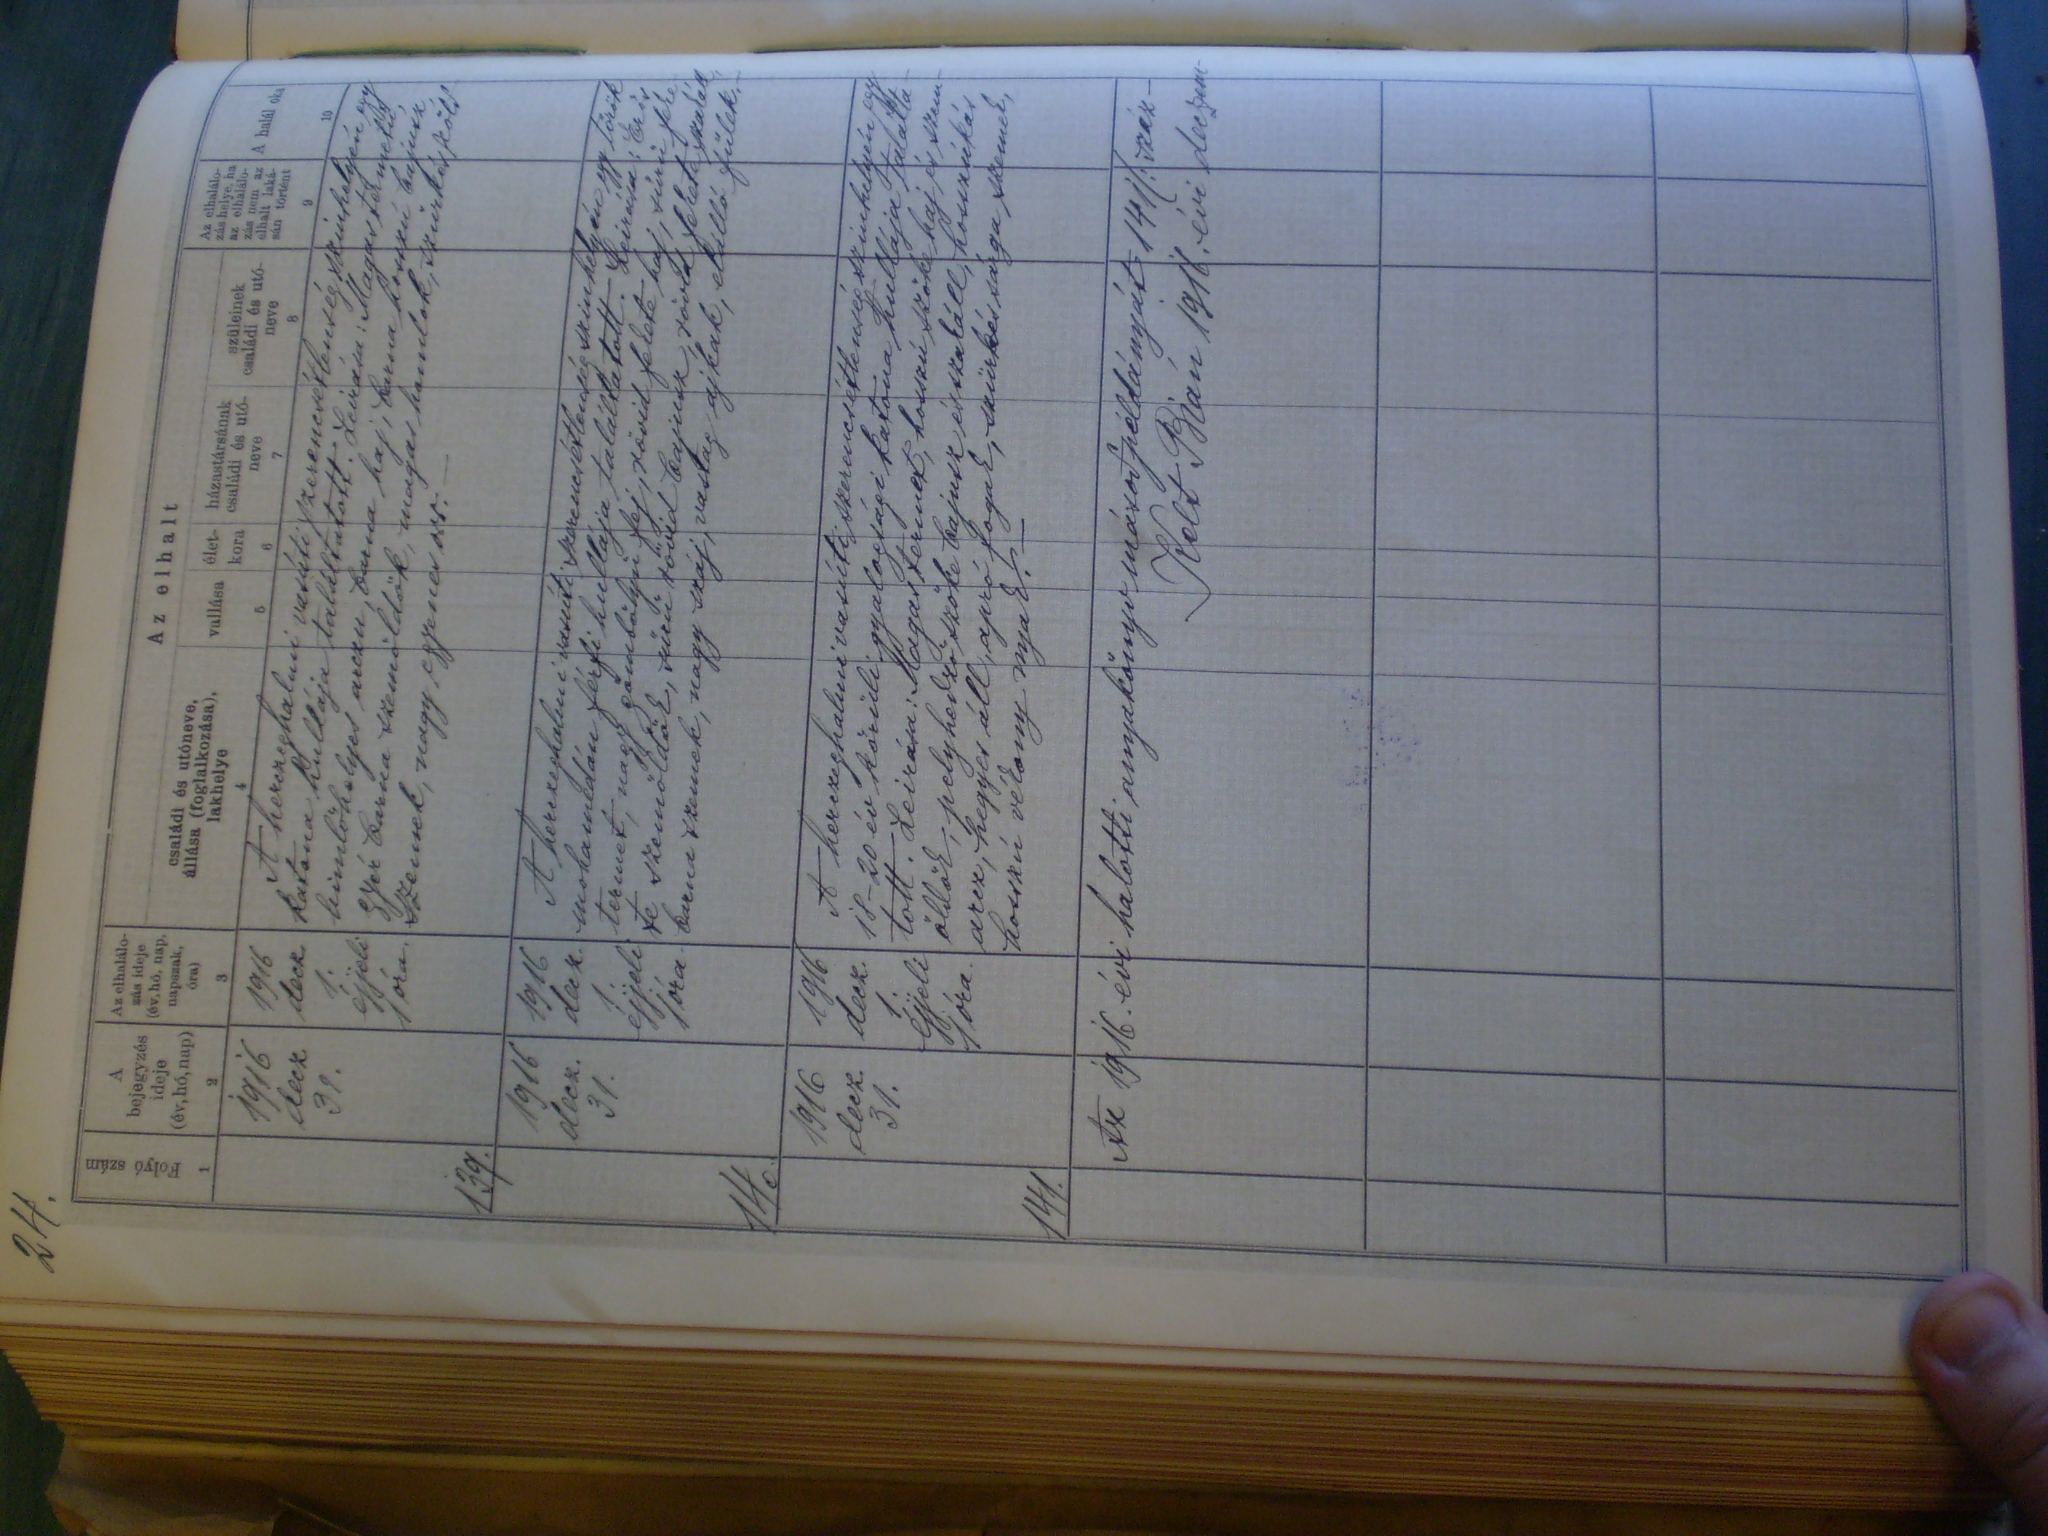 24.
Az elhalt
Folyó szám
A bejegyzés ideje (év, hó, nap)
Az elhalálo-
zás ideje
(év, hó, nap,
napszak,
óra)
családi és utóneve,
állása (foglalkozása),
lakhelye
vallása
élet-
kora
házastársának
családi és utó-
neve
szüleinek
családi és utó-
neve
Az elhalálo-
zás helye, ha
az elhalálo-
zás nem az
elhalt laká-
sán történt
A halál oka
1 2 3 4 5 6 7 8 9 10
139.
1916
decz.
31.
1916
decz.
1.
éjjeli
1 óra.
A herczeghalmi vasúti szerencsétlenség szinhelyén egy
katona hullája találtatott. Leirása: Magas termetű
himlőhelyes arczu, barna haj, barna hosszú bajusz
gyér barna szemöldök, magas homlok, szürkés zöld
szemek, nagy egyenes orr. —
140.
1916
decz.
31.
1916
decz.
1.
éjjeli
1 óra.
A herczeghalmi vasúti szerencsétlenség szinhelyén egy török
mohamedán férfi hullája találtatott. Leirása: Erős
termet, nagy gömbölyü fej, rövid fekete haj, sürü feke
te szemöldök, sürü rövid bajusz, rövid fekete szakáll,
barna szemek, nagy száj, vastag ajkak, elálló fülek. —
141.
1916
decz.
31.
1916
decz.
1.
éjjeli
1 óra.
A herczeghalmi vasúti szerencsétlenség szinhelyén egy
18-20 év körüli gyalogsági katona hullája találta
tott. Leirása: Magas termet, hosszú szőke haj és szem-
öldök, pelyhedző szőke bajusz és szakáll, hosszúkás
arcz, hegyes áll, apró fogak, szürkés sárga szemek,
hosszú vékony nyak. —
Az 1916. évi halotti anyakönyv másodpéldányát 141/: száz-
Kelt Bián 1916. évi deczem-